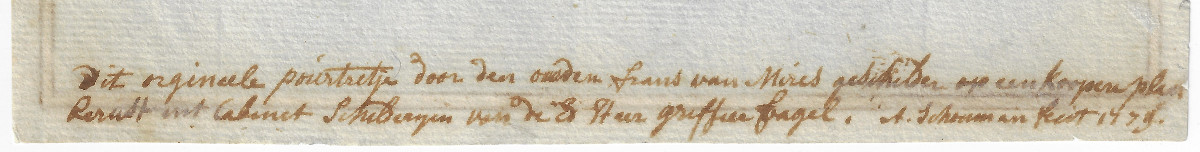 Dit orgineele pourtretje door den ouden frans van Miris geschilder op een koopere plaat
Berust int Cabinet Schilderyen van de Ed Heer griffier fagel. A. Schouman fecit 177